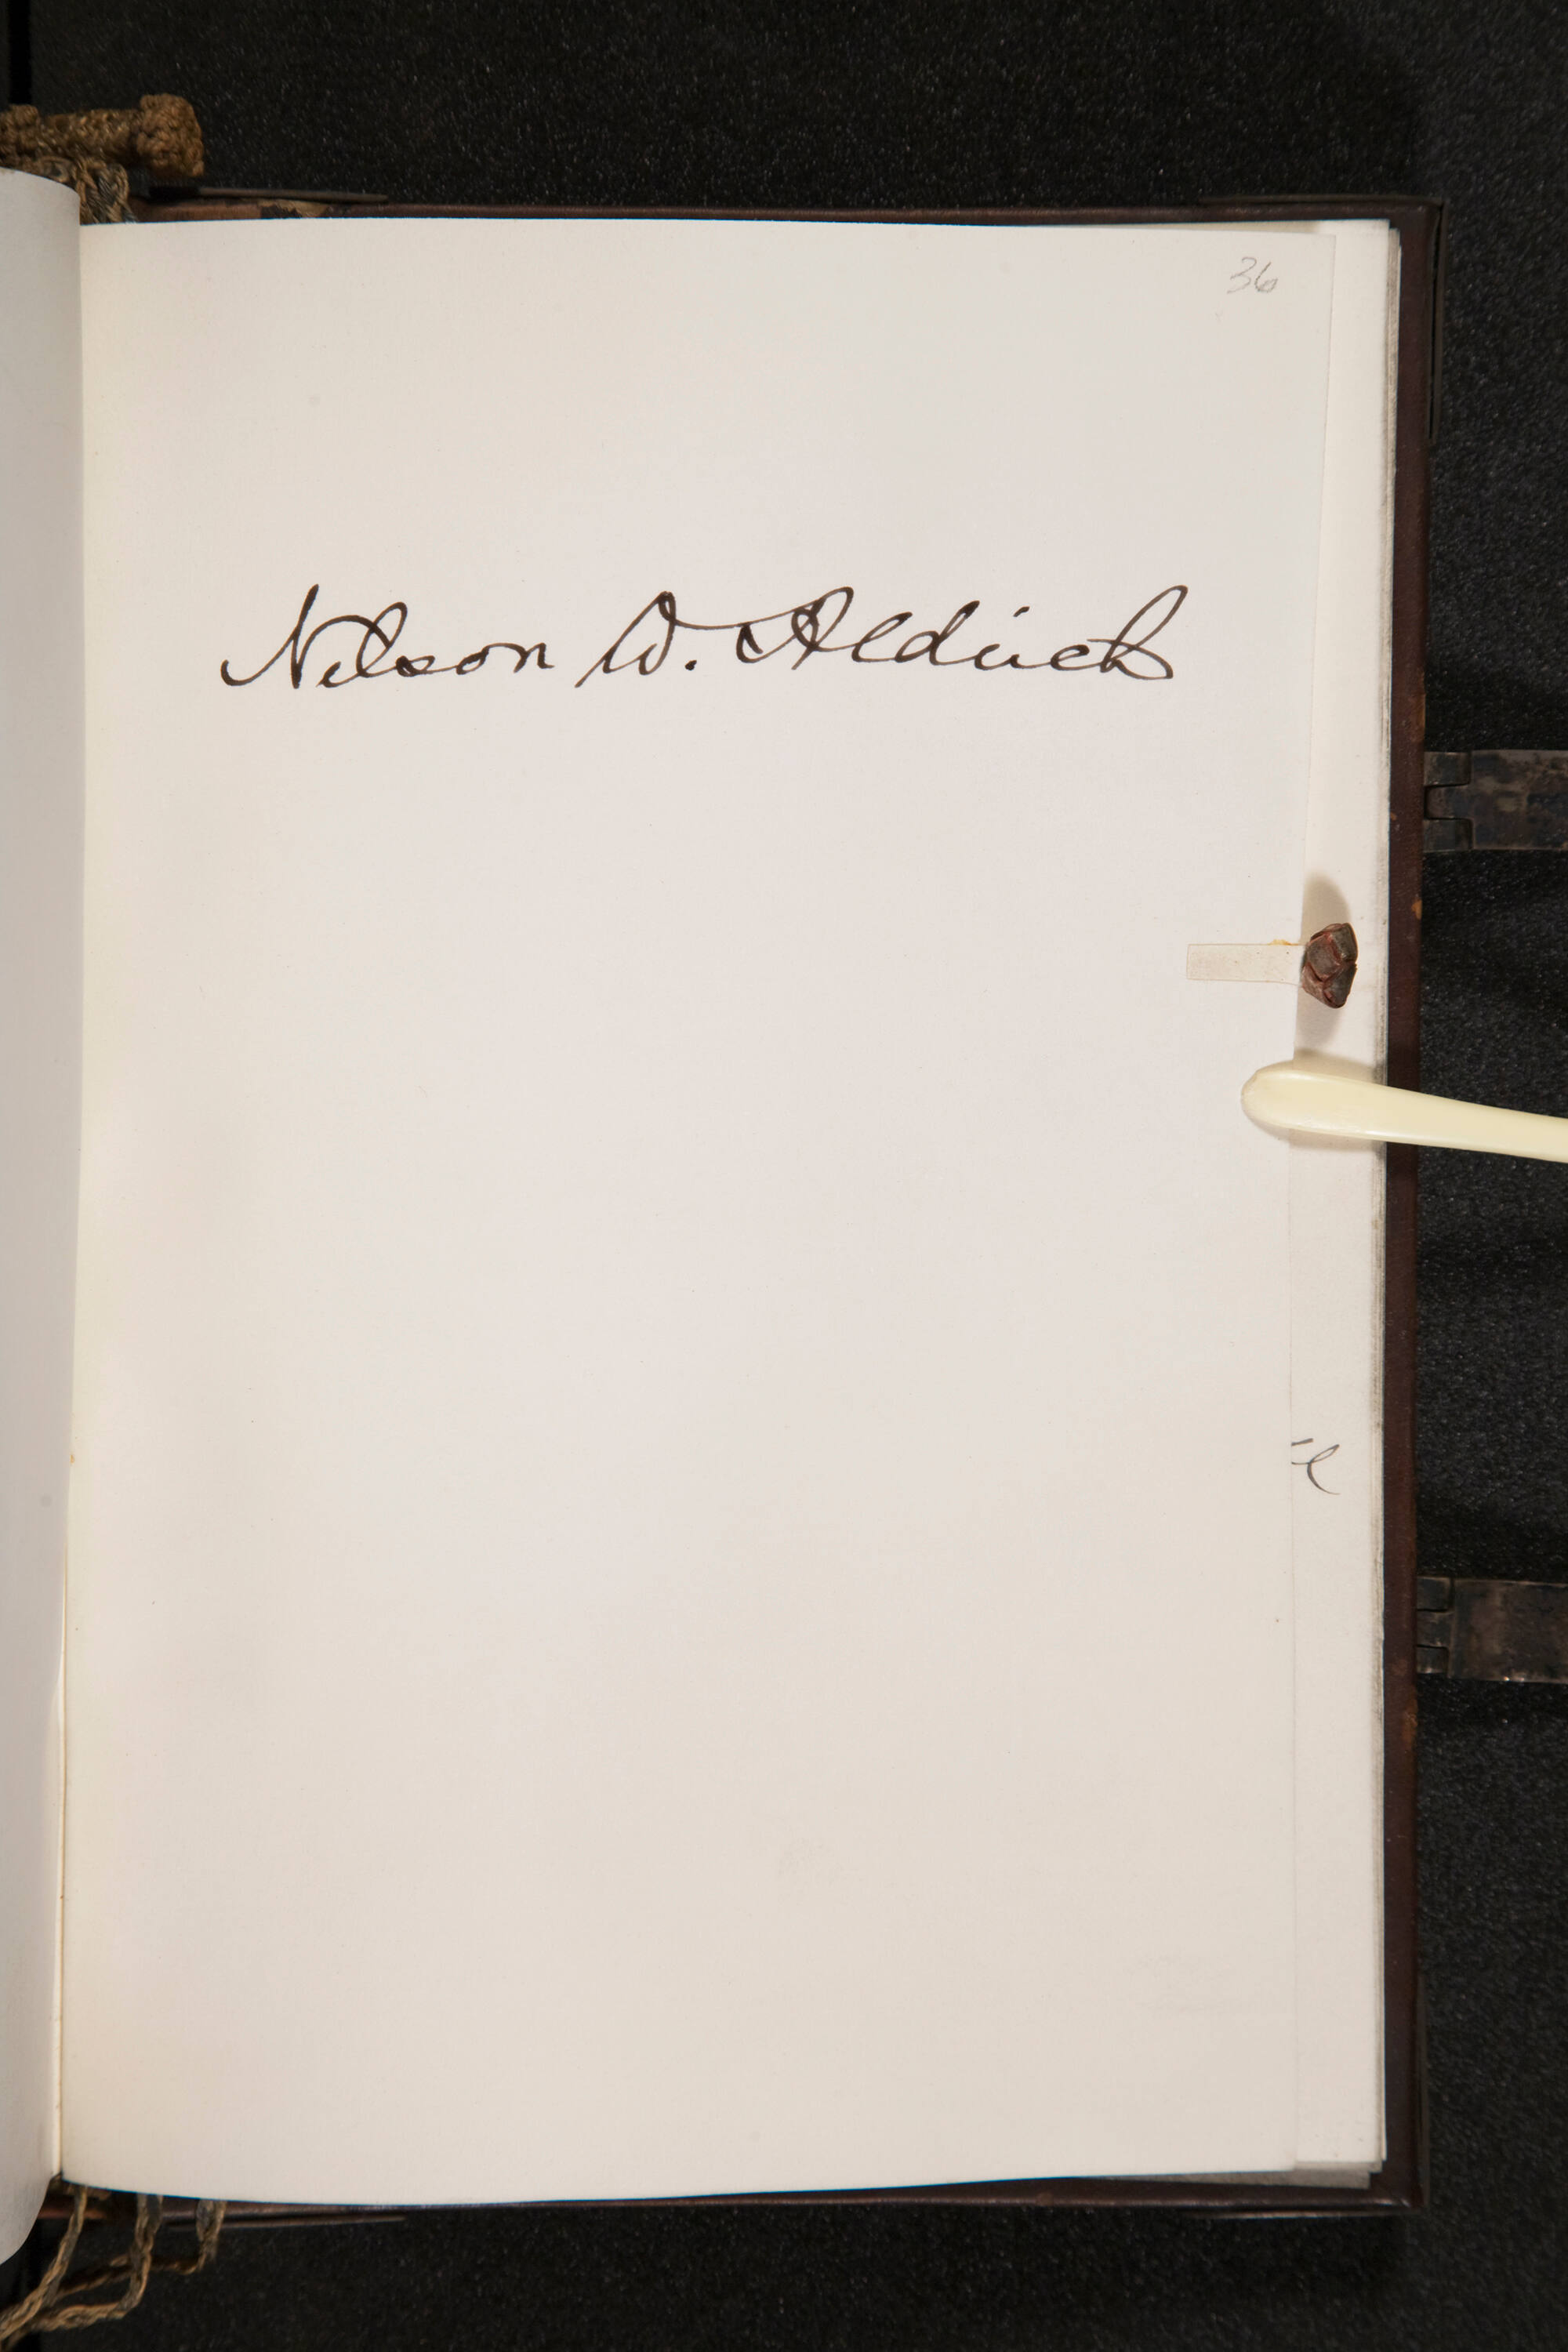 36
Nelson W. Aldrich